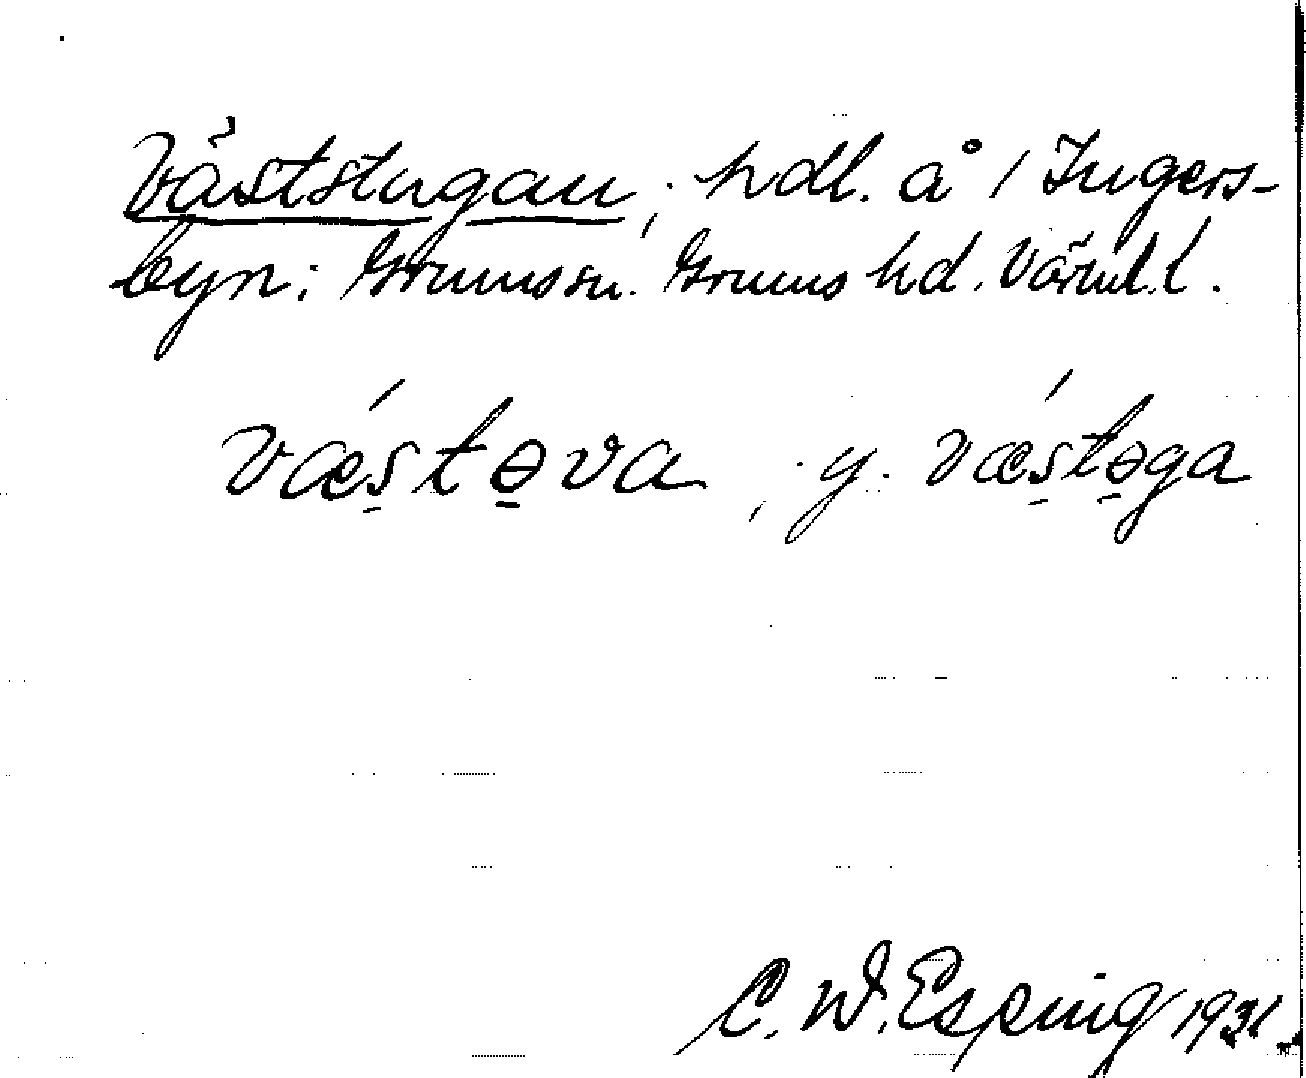 Väststugan; hdl. å 1 Ingers-
byn; Grums sn. Grums hd. Värml.l.
vǽstəva, y. vǽstəga
C. W. Esping 1931.